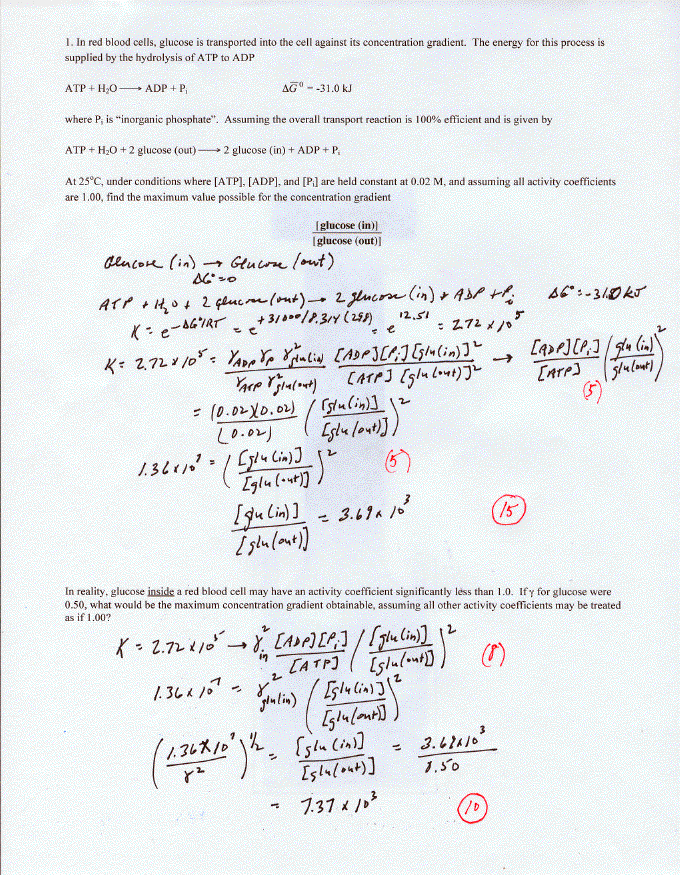 1. In red blood cells, glucose is transported into the cell against its concentration gradient. The energy for this process is
supplied by the hydrolysis of ATP to ADP
ATP + H₂O ⟶ ADP + Pᵢ ΔG̅⁰ = -31.0 kJ
where Pᵢ is “inorganic phosphate”. Assuming the overall transport reaction is 100% efficient and is given by
ATP + H₂O + 2 glucose (out) ⟶ 2 glucose (in) + ADP + Pᵢ
At 25°C, under conditions where [ATP], [ADP], and [Pᵢ] are held constant at 0.02 M, and assuming all activity coefficients
are 1.00, find the maximum value possible for the concentration gradient
[glucose (in)]
[glucose (out)]
Glucose (in) → Glucose (out)
ΔG° = 0
ATP + H₂O + 2 glucose (out) → 2 glucose (in) + ADP + Pᵢ ΔG° = -31.0 kJ
K = e^-ΔG°/RT = e^+31000/8.314(298) = e^12.51 = 2.72 x 10⁵
K = 2.72 x 10⁵ = γADP γP γ²glu(in) [ADP][Pᵢ][glu(in)]² → [ADP][Pᵢ] (glu(in))²
γATP γ²glu(out) [ATP][glu(out)]² [ATP] (glu(out))
(5)
= (0.02)(0.02) ([glu(in)])²
(0.02) ([glu(out)])
1.36 x 10⁷ = ([glu(in)])² (5)
([glu(out)])
[glu(in)] = 3.69 x 10³ (15)
[glu(out)]
In reality, glucose inside a red blood cell may have an activity coefficient significantly less than 1.0. If γ for glucose were
0.50, what would be the maximum concentration gradient obtainable, assuming all other activity coefficients may be treated
as if 1.00?
K = 2.72 x 10⁵ → γ²in [ADP][Pᵢ] ([glu(in)])² (8)
[ATP] ([glu(out)])
1.36 x 10⁷ = γ²glu(in) ([glu(in)])²
([glu(out)])
(1.36 x 10⁷)^1/2 = [glu(in)] = 3.69 x 10³
γ² [glu(out)] 0.50
= 7.37 x 10³ (10)